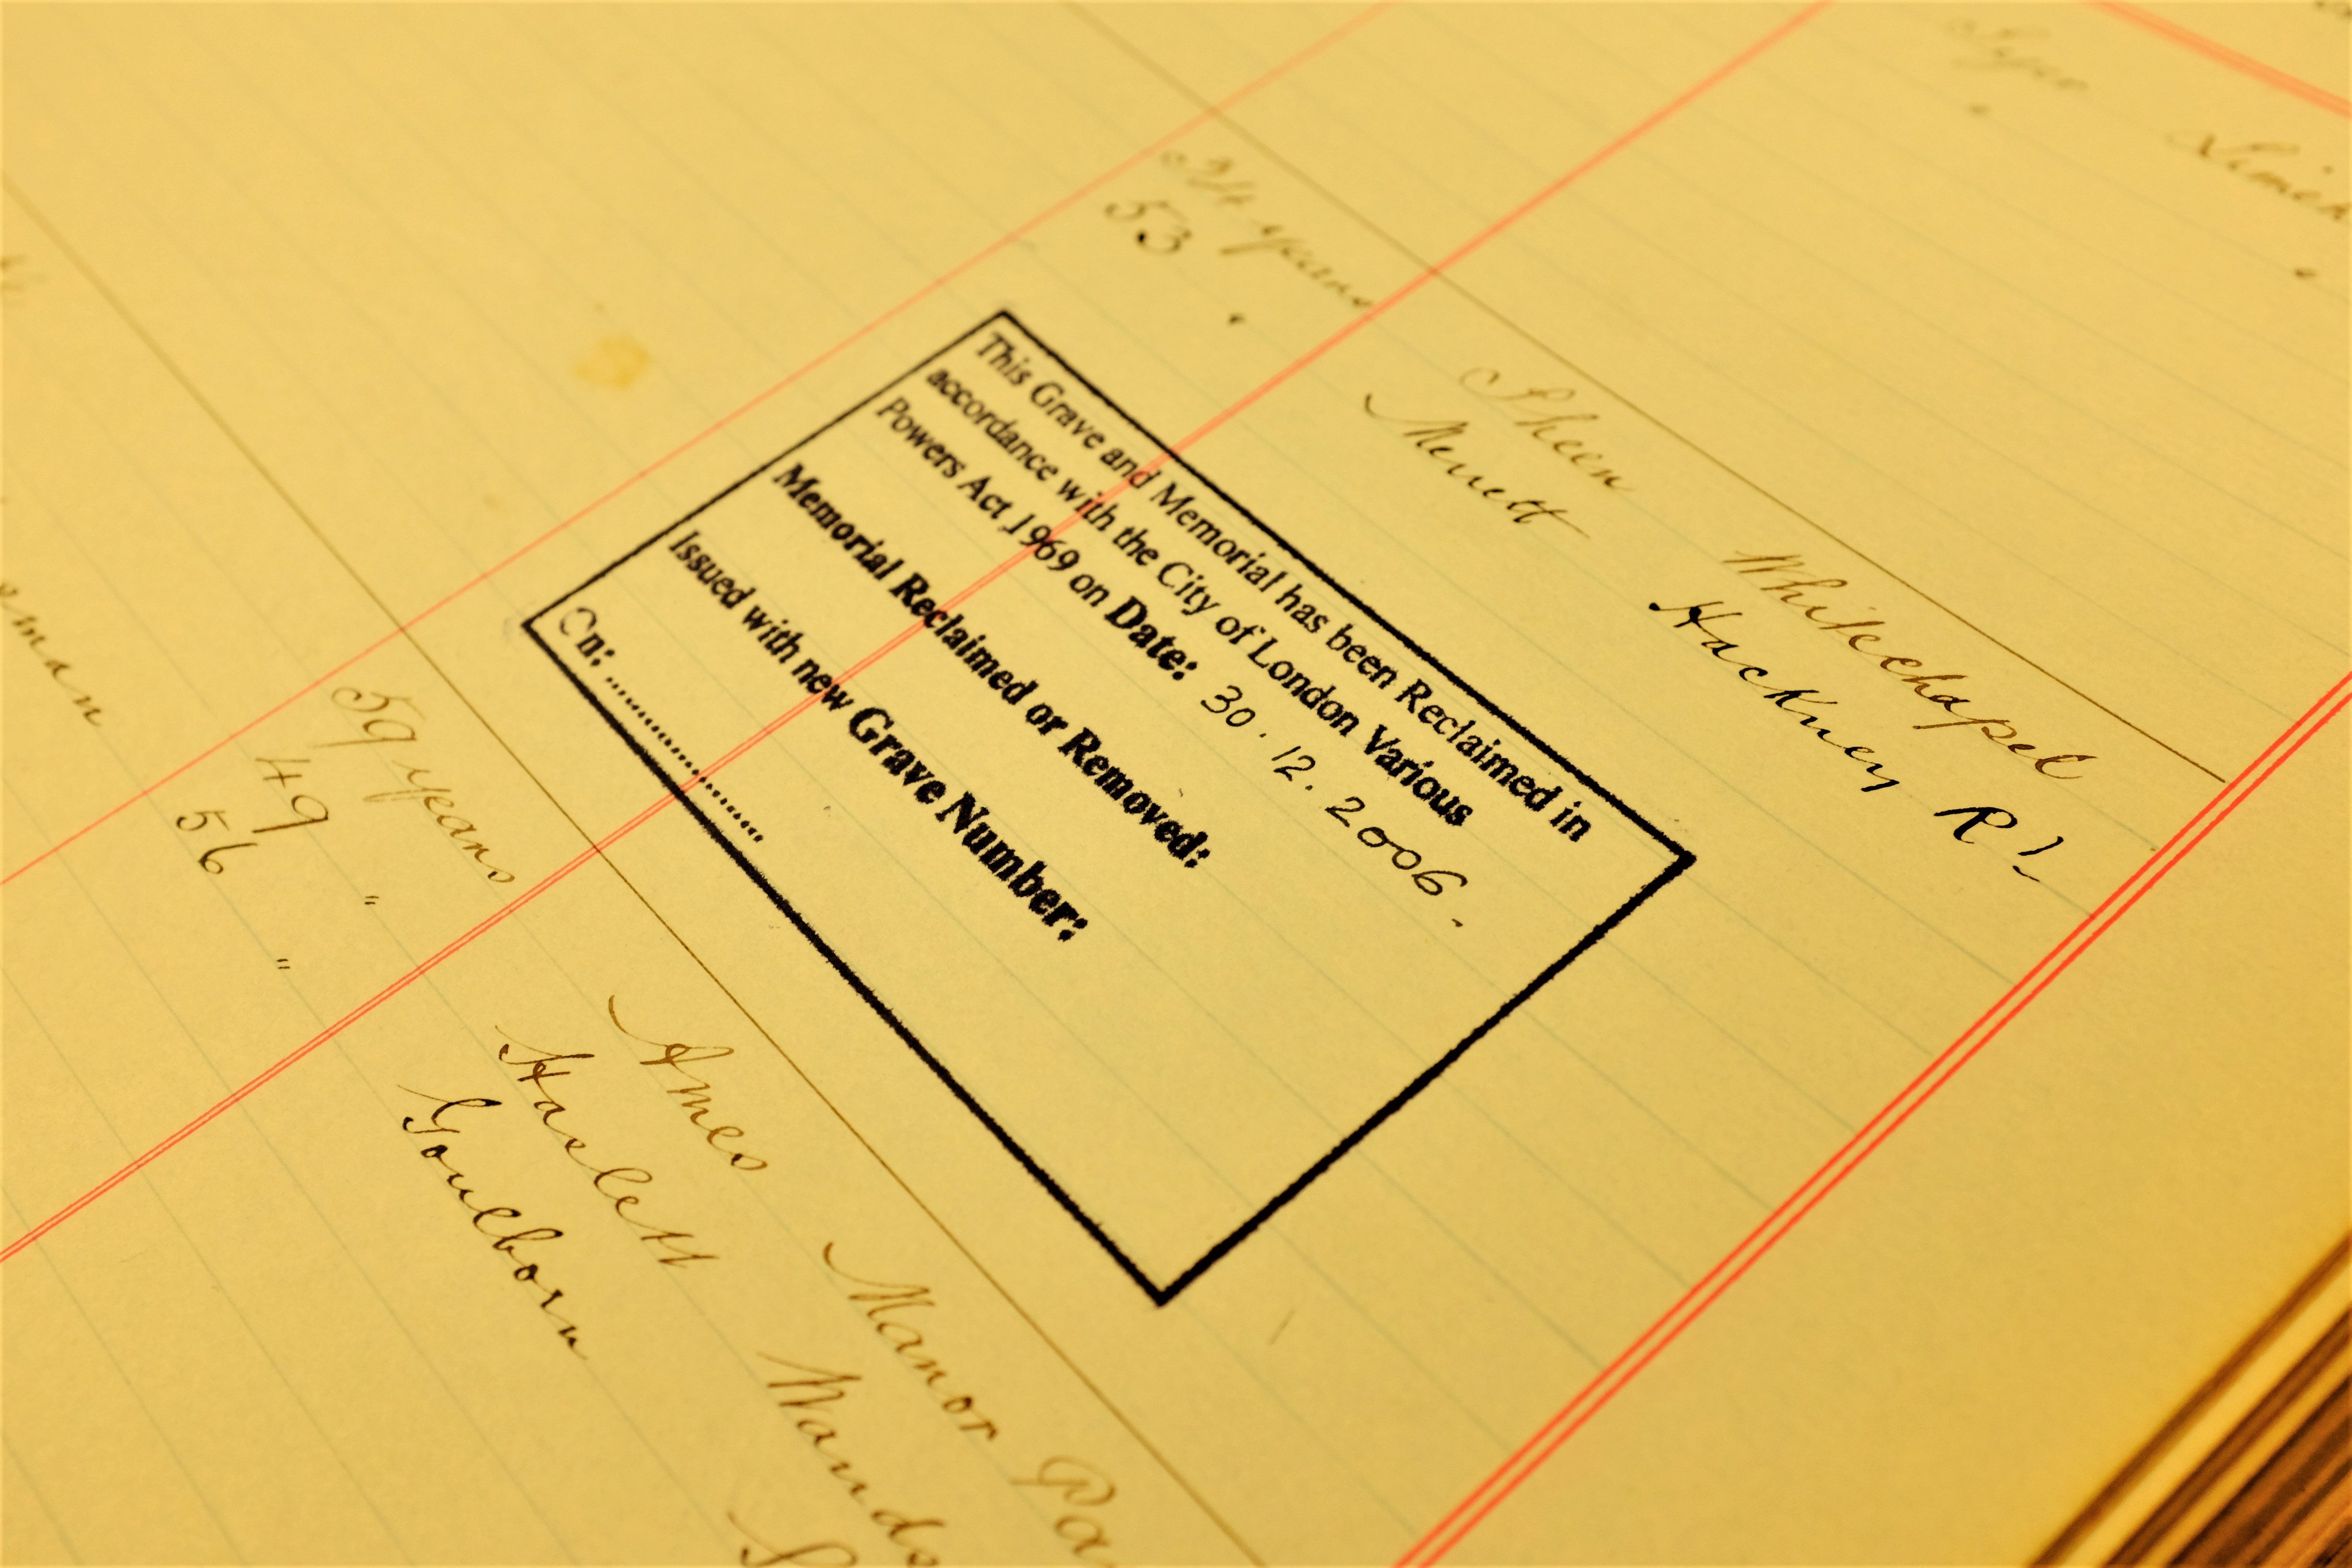 34 years Sheen Whitechapel
53 " Merrett Hackney Rd
This Grave and Memorial has been Reclaimed in
accordance with the City of London Various
Powers Act 1969 on Date: 30.12.2006.
Memorial Reclaimed or Removed:
Issued with new Grave Number:
On: ........................
59 years Ames Manor
49 " Haslett
56 " Goulborn